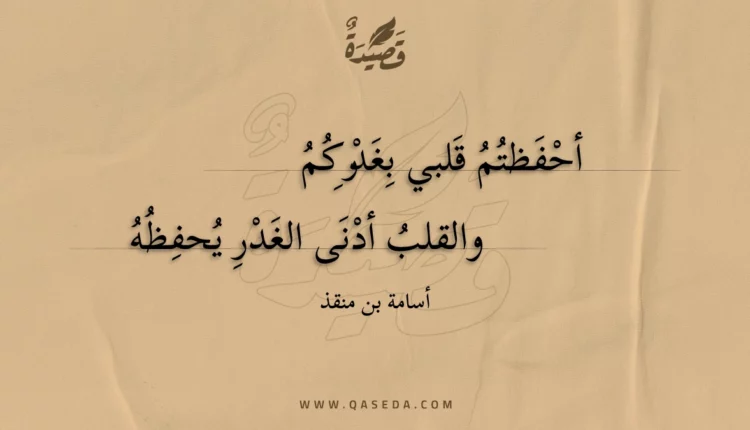 قَصِيدَةٌ
أحْفَظتُمُ قَلبي بِغَدْرِكُمُ
والقلبُ أدْنَى الغَدْرِ يُحفِظُهُ
أسامة بن منقذ
WWW.QASEDA.COM